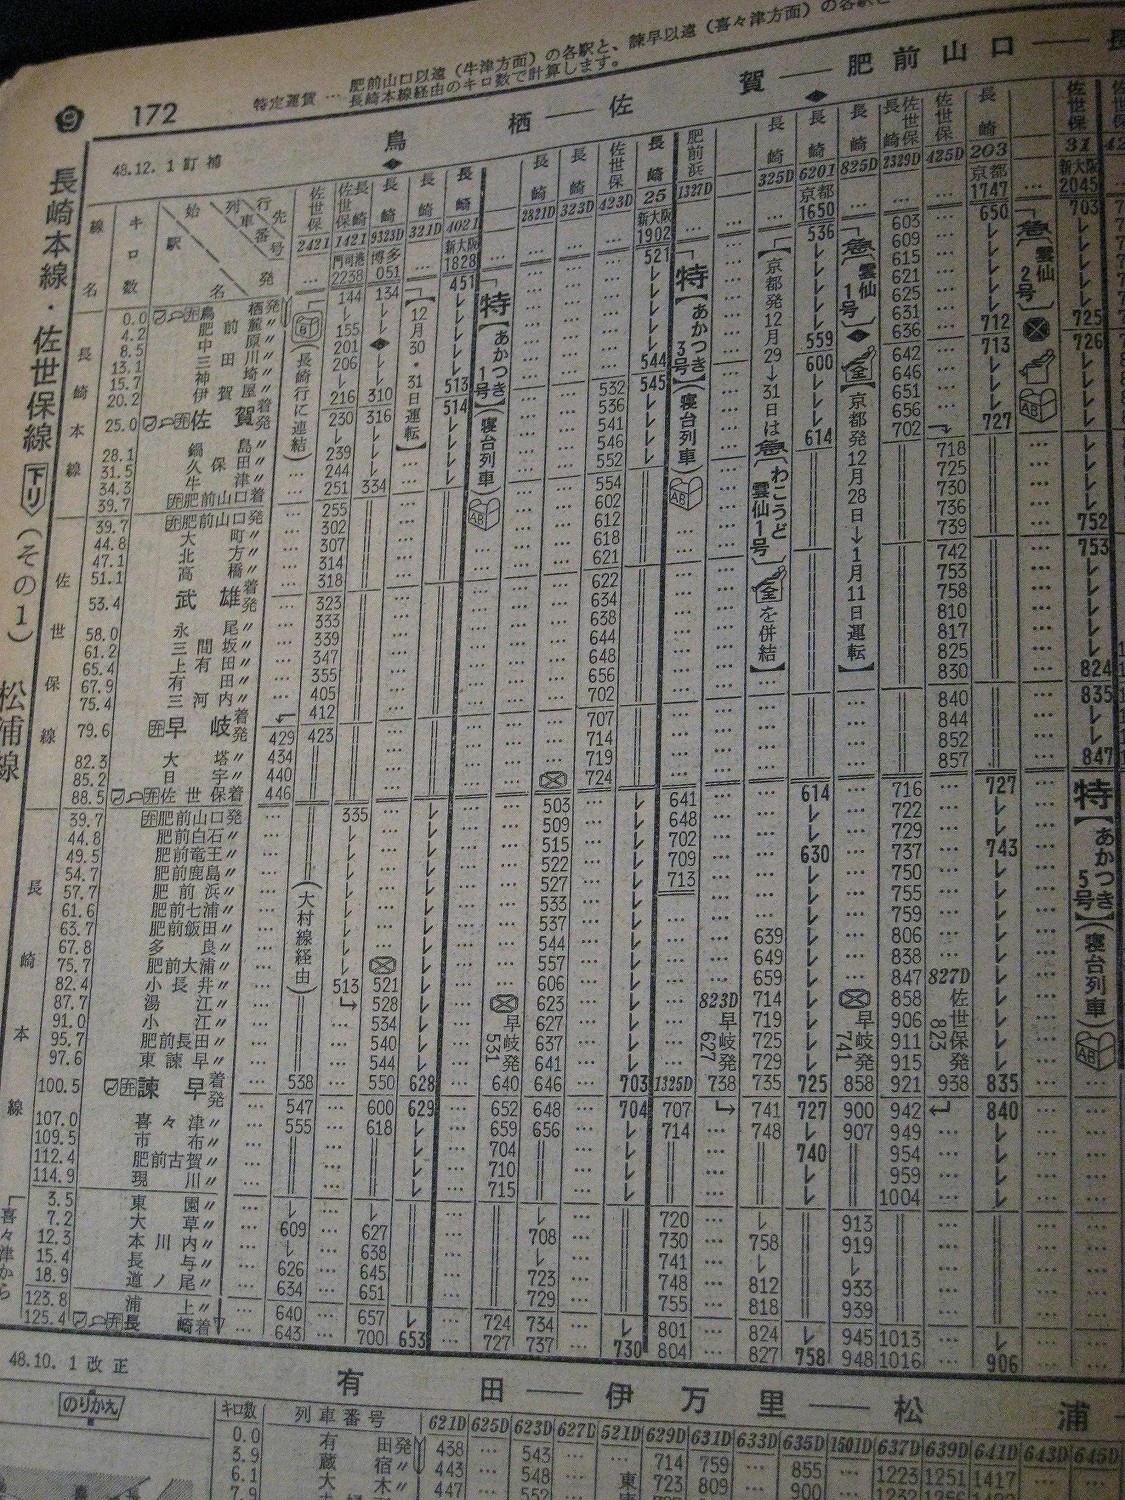 特定運賃 … 肥前山口以遠（牛津方面）の各駅と、諫早以遠（喜々津方面）の各駅と
長崎本線経由のキロ数で計算します。
9 172
鳥栖――佐賀――肥前山口――長
長崎本線・佐世保線 下り (その1)
松浦線
48.12. 1 訂補
線名 キロ数 始発 駅名 列車番号 行先
佐世保 佐世保 長崎 長崎 長崎 長崎 長崎 長崎 佐世保 長崎 肥前浜 長崎 長崎 長崎 長崎 佐世保 佐世保 長崎 佐世保
2421 1421 9323D 321D 4021 2821D 323D 423D 25 1327D 325D 6201 825D 2329D 425D 203 31
門司港 2238 博多 051 新大阪 1828 新大阪 1902 京都 1650 京都 1747 新大阪 2045
長崎本線
0.0 鳥栖発
4.2 肥前麓〃
8.5 中原〃
13.1 三田川〃
15.7 神埼〃
20.2 伊賀屋〃
25.0 佐賀着発
28.1 鍋島〃
31.5 久保田〃
34.3 牛津〃
39.7 肥前山口着
佐世保線
39.7 肥前山口発
44.8 大町〃
47.1 北方〃
51.1 高橋〃
53.4 武雄着発
58.0 永尾〃
61.2 三間坂〃
65.4 上有田〃
67.9 有田〃
75.4 三河内〃
79.6 早岐着発
82.3 大塔〃
85.2 日宇〃
88.5 佐世保着
長崎本線
39.7 肥前山口発
44.8 肥前白石〃
49.5 肥前竜王〃
54.7 肥前鹿島〃
57.7 肥前浜〃
61.6 肥前七浦〃
63.7 肥前飯田〃
67.8 多良〃
75.7 肥前大浦〃
82.4 小長井〃
87.7 湯江〃
91.0 小江〃
95.7 肥前長田〃
97.6 東諫早〃
100.5 諫早着発
107.0 喜々津〃
109.5 市布〃
112.4 肥前古賀〃
114.9 現川〃
「喜々津から
3.5 東園〃
7.2 大草〃
12.3 本川内〃
15.4 長与〃
18.9 道ノ尾〃
123.8 浦上〃
125.4 長崎着
429 434 440 446
(長崎行に連結)
144 155 201 206 216 230 239 244 251 255 302 307 314 318 323 333 339 347 355 405 412 423
(大村線経由)
538 547 555 609 626 634 640 643
134 310 316 334 335 513
【12月30・31日運転】
521 528 534 540 544 550 600 618 627 638 645 651 657 700
451 513 514 628 629 653
特【あかつき1号】(寝台列車)
早岐発 531 640 652 659 704 710 715 724 727
503 509 515 522 527 533 537 544 557 606 623 627 637 641 646 648 656 708 723 729 734 737
532 536 541 546 552 554 602 612 618 621 622 634 638 644 648 656 702 707 714 719 724
521 544 545 703 704 730
特【あかつき3号】(寝台列車)
641 648 702 709 713
1325D 707 714 720 730 741 748 755 801 804
823D 早岐発 627 738
【京都発12月29→31日は急「わこうど 雲仙1号」を併結】
639 649 659 714 719 725 729 735 741 748 758 812 818 824 827
536 559 600 614 614 630 725 727 740 758
急「雲仙1号」【京都発12月28日→1月11日運転】
早岐発 741 858 900 907 913 919 933 939 945 948
603 609 615 621 625 631 636 642 646 651 656 702 716 722 729 737 750 755 759 806 838 847 858 906 911 915 921 942 949 954 959 1004 1013 1016
718 725 730 736 739 742 753 758 810 817 825 830 840 844 852 857
827D 佐世保発 823 938
650 712 713 727 727 743 835 840 906
急「雲仙2号」
703 725 726 752 753 824 835 847
特【あかつき5号】(寝台列車)
48.10. 1 改正
有田――伊万里――松浦
のりかえ
キロ数 列車番号 621D 625D 623D 627D 521D 629D 631D 633D 635D 1501D 637D 639D 641D 643D 645D
0.0 有田発 438 … 543 … … 714 759 … 855 … 1223 1251 1417
3.9 蔵宿〃 443 … 548 … 東 723 809 … 900
6.1 大木〃 447 … 552
7.9